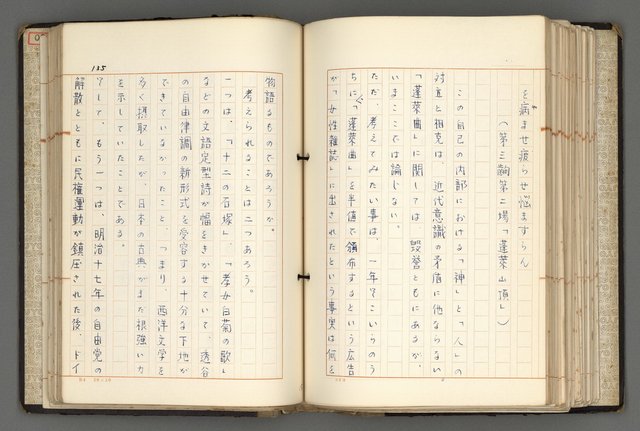 を病ませ疲らせ悩ますらん
(第三齣第二場「蓬莱山頂」)
この自己の内部における「神」と「人」の
対立と相克は、近代意識の矛盾に他ならない
「蓬莱曲」に関しては毀誉ともにあるが、
いまここでは論じない。
ただ、考えてみたい事は、一年
ちに「蓬莱曲」を半値で頒布するという広告
が「女性雑誌」に出されたという事実は何を
135
物語るものであろうか。
考えられることは二つあろう。
一つは、「十二の石塚」、「孝女白菊の歌」
などの文語定型詩が幅をきかせていて、透谷
の自由律調の新形式を受容する十分な下地が
できていなかったこと、つまり、西洋文学を
多く摂取したが、日本の古典がまだ根強い力
を示していたことである。
そして、もう一つは、明治十七年の自由党の
解散とともに民権運動が鎮圧された後、ドイ